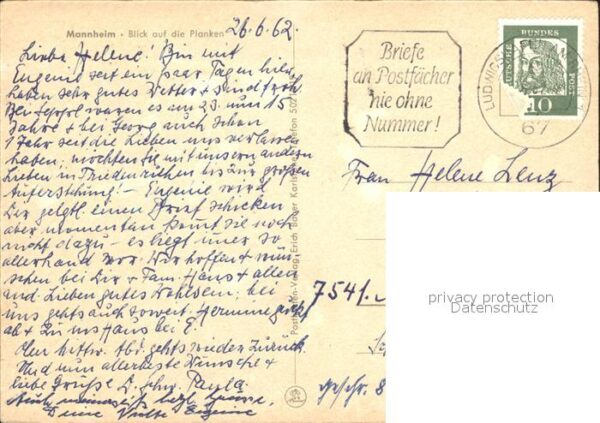 Mannheim · Blick auf die Planken
26.6.62.
Liebe Helene! Bin mit
Eugenie seit ein paar Tagen hier,
haben sehr gutes Wetter + sind froh.
Bei waren es am 23. nun 15
Jahre + bei Georg auch schon
1 Jahr seit die Lieben uns verlassen
haben; möchten sie mit unsern andern
Lieben in Frieden ruhen bis zur großen
Auferstehung! – Eugenie wird
Dir gelgtl. einen Brief schicken
aber momentan kommt sie noch
nicht dazu – es liegt immer so
allerhand vor. Wir hoffen + wün-
schen bei Dir + Fam. Hans + allen
and. Lieben gutes Wohlsein; bei
uns gehts auch soweit. Hermine
ab + zu ins Haus bei E.
Mittw. Abd. gehts wieder zurück.
Und nun allerbeste Wünsche +
liebe Grüße D. schw. Paula
Auch meinerseits herzl. Grüße,
Deine Eugenie
Briefe
an Postfächer
nie ohne
Nummer!
DEUTSCHE BUNDES POST
10
LUDWIGS
67
Frau Helene Lenz
7541
privacy protection
Datenschutz